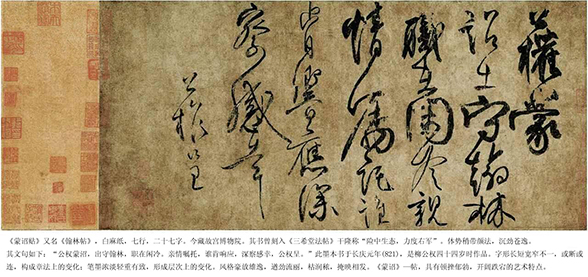 公權蒙
詔出守翰林
職在閑冷親
情囑託誰
肯響應深
察感幸
公權呈
《蒙诏帖》又名《翰林帖》，白麻纸，七行，二十七字。今藏故宫博物院。其书曾刻入《三希堂法帖》乾隆称“险中生态，力度右军”。体势稍带颜法，沉劲苍逸。
其文句如下：“公权蒙诏，出守翰林，职在闲冷。亲情嘱托，谁肯响应，深察感幸，公权呈。”此墨本书于长庆元年(821)，是柳公权四十四岁时作品。字形长短宽窄不一，或断或
连，构成章法上的变化；笔墨浓淡轻重有致，形成层次上的变化。风格豪放雄逸，遒劲流丽，枯润秾，掩映相发。《蒙诏》一帖，具有顿挫郁勃，汪洋跌宕的艺术特点。